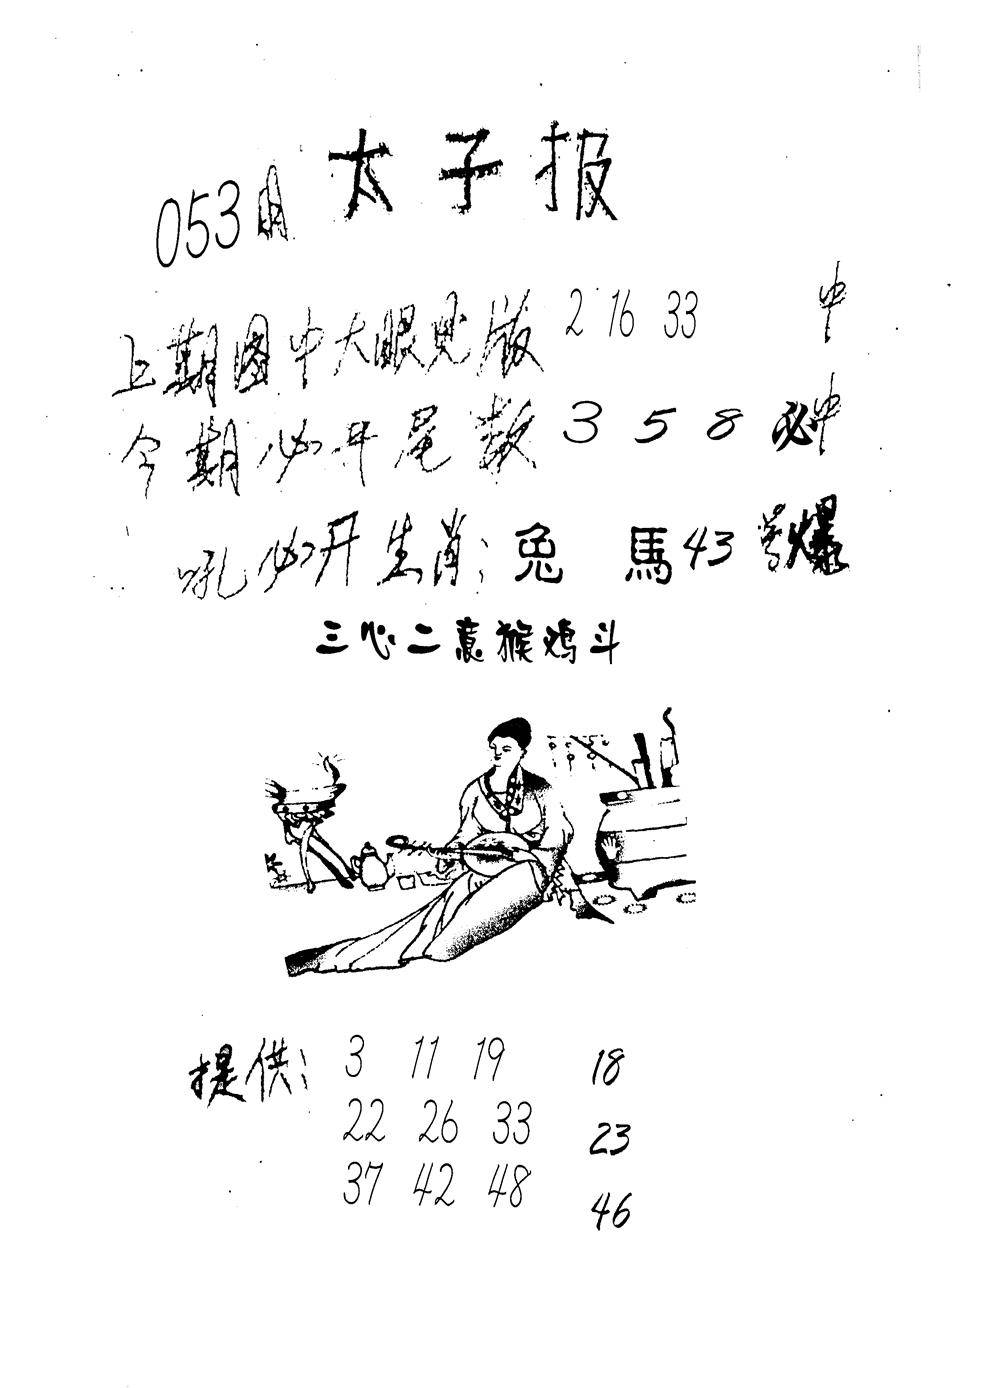 太子报
053期
上期图中大眼见版 2 16 33 中
今期必开尾数 3 5 8 必中
吼必开生肖：兔 馬 43 号爆
三心二意猴鸡斗
提供： 3 11 19 18
22 26 33 23
37 42 48 46